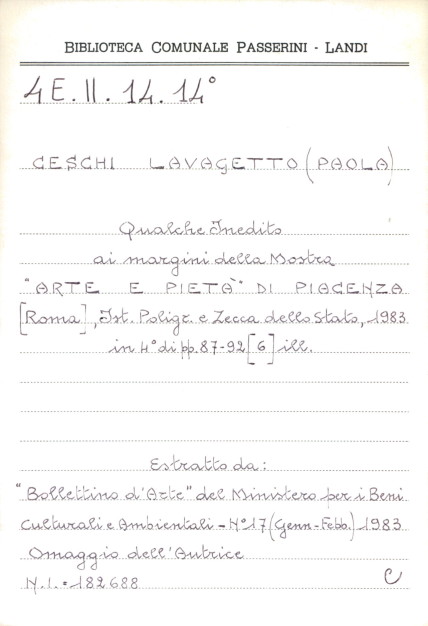 BIBLIOTECA COMUNALE PASSERINI - LANDI
4E.II.14.14°
CESCHI LAVAGETTO (PAOLA)
Qualche Inedito
ai margini della Mostra
"ARTE E PIETÀ" DI PIACENZA
[Roma], Ist. Poligr. e Zecca dello Stato, 1983
in 4° di pp. 87-92 [6] ill.
Estratto da:
"Bollettino d'Arte" del Ministero per i Beni
Culturali e Ambientali - N° 17 (Genn-Febb.) 1983
Omaggio dell'Autrice
N.I. = 182688
C